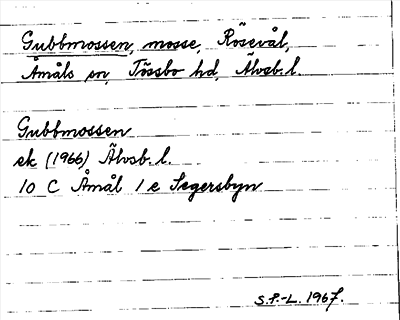 Gubbmossen, mosse, Rösevål,
Åmåls sn, Tössbo hd, Älvsb. l.
Gubbmossen
ek (1966) Älvsb. l.
10 C Åmål 1 e Segersbyn
S.P.-L. 1967.